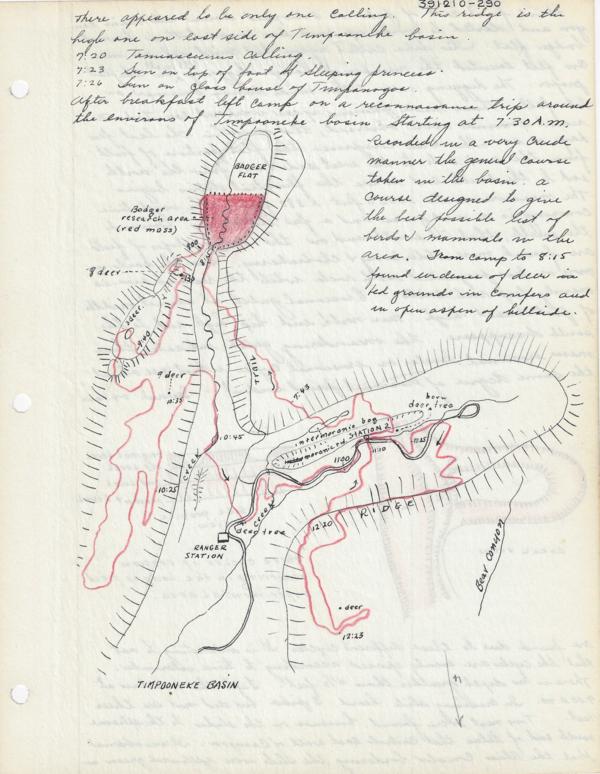 391210-290
There appeared to be only one calling. This ridge is the
high one on east side of Timpooneke basin.
7:20 Tamiasciurus calling.
7:23 Sun on top of foot of Sleeping princess.
7:26 Sun on glass house of Timpanogos.
After breakfast left camp on a reconnaissance trip around
the environs of Timpooneke basin. Starting at 7:30 A.M.
Recorded in a very crude
manner the general course
taken in the basin. a
course designed to give
the best possible list of
birds & mammals in the
area. From camp to 8:15
found evidence of deer in
bed grounds in conifers and
in open aspen of hillside.
BADGER
FLAT
Badger
research area
(red moss)
9:00
8:15
9 deer
9:30
deer
9:40
TRAIL
7:43
9 deer
10:35
10:45
CREEK
10:25
intermoranic bog
STATION 2
born
deer tree
11:00
11:10
11:25
CREEK
deer tree
RANGER
STATION
12:20
RIDGE
Bear Canyon
deer
12:23
TIMPOONEKE BASIN
N